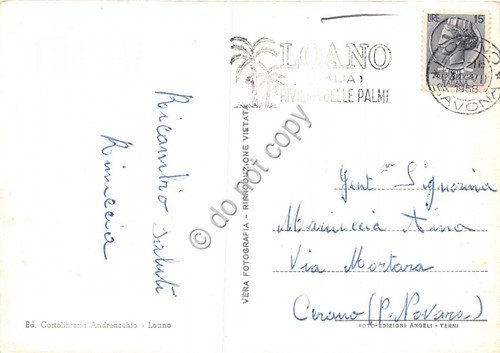 LOANO
(ITALIA)
RIVIERA DELLE PALME
LIRE 15
LOANO
SAVONA
1958
Ricambio saluti
VERA FOTOGRAFIA - RIPRODUZIONE VIETATA
do not copy
Gent.ma Signorina
Via Mortara
Cerano (P. Novara)
Ed. Cartolibreria Andrenacchio - Loano
FOTO-EDIZIONI ANGELI - TERNI